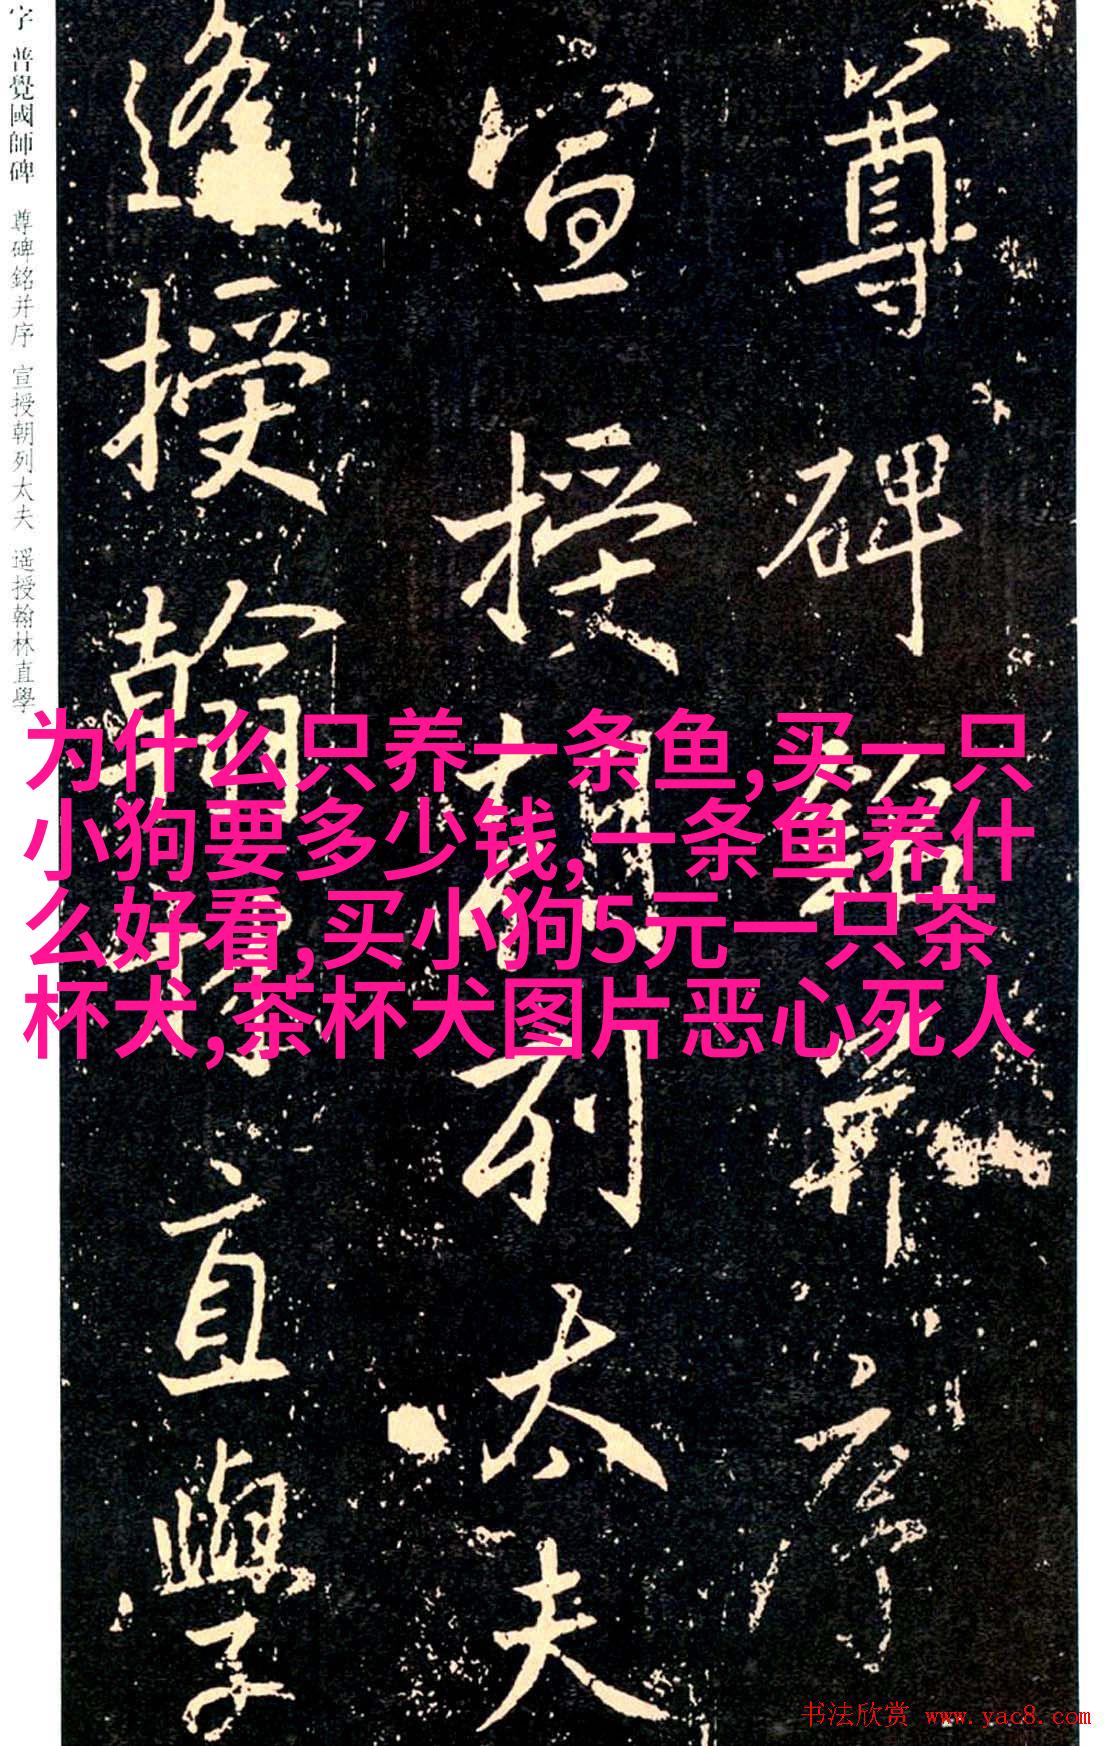 字 普覺國師碑 尊碑銘并序 宣授朝列太夫 遥授翰林直學
尊碑銘并序
宣授朝列太夫
遙授翰林直學
为什么只养一条鱼,买一只
小狗要多少钱,一条鱼养什
么好看,买小狗5元一只茶
杯犬,茶杯犬图片恶心死人
书法欣赏 www.yac8.com